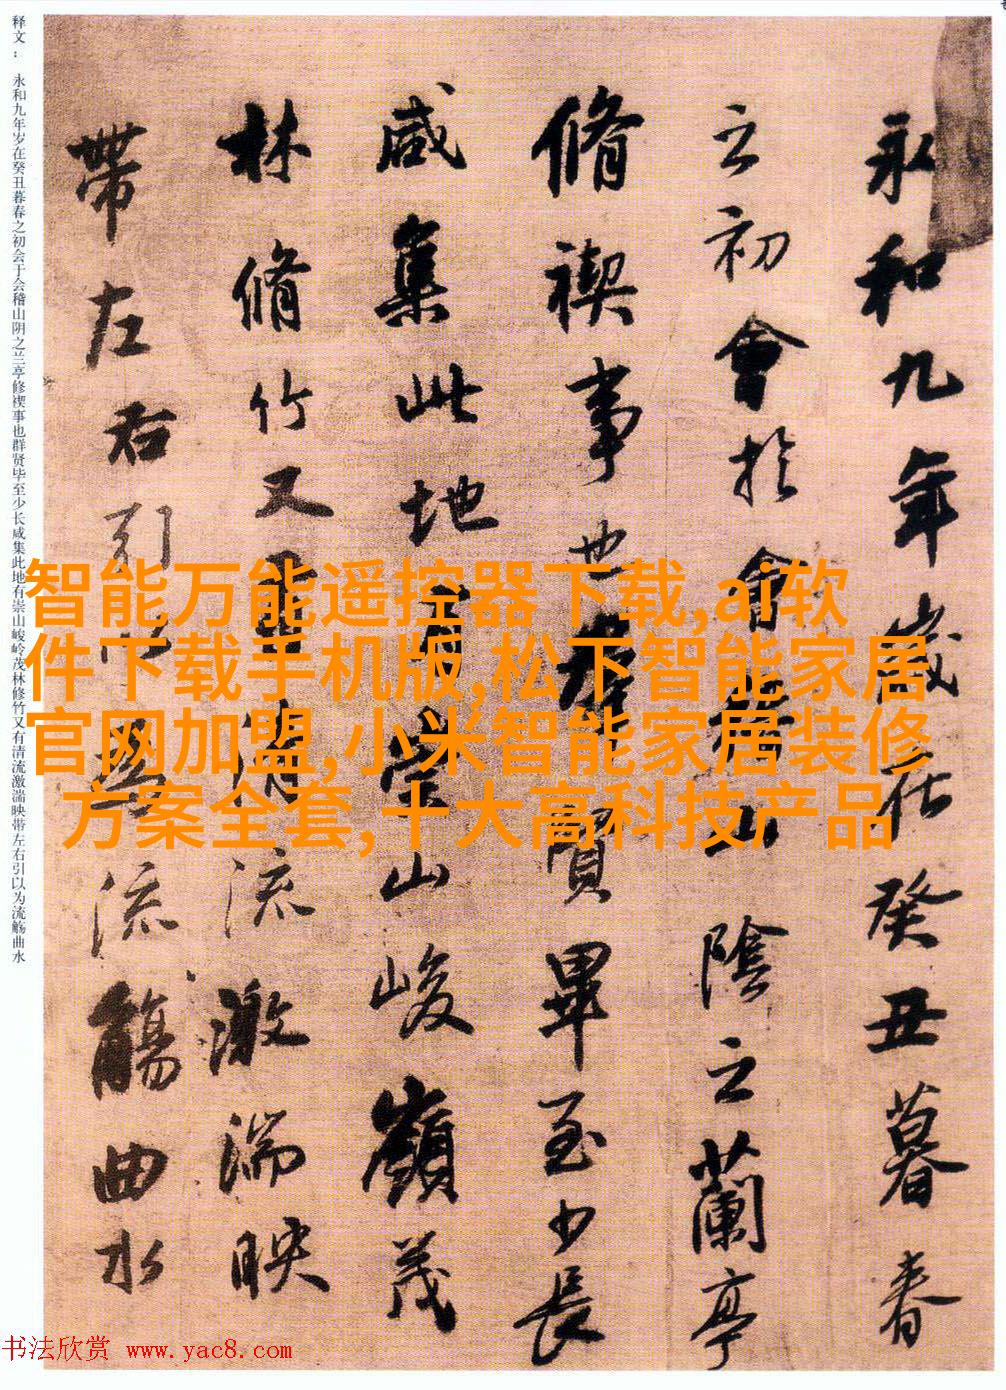 永和九年歲在癸丑暮春
之初會於會稽山陰之蘭亭
脩禊事也羣賢畢至少長
咸集此地有崇山峻嶺茂
林脩竹又有清流激湍映
帶左右引以為流觴曲水
释文： 永和九年岁在癸丑暮春之初会于会稽山阴之兰亭修禊事也群贤毕至少长咸集此地有崇山峻岭茂林修竹又有清流激湍映带左右引以为流觞曲水
智能万能遥控器下载,ai软
件下载手机版,松下智能家居
官网加盟,小米智能家居装修
方案全套,十大高科技产品
书法欣赏 www.yac8.com